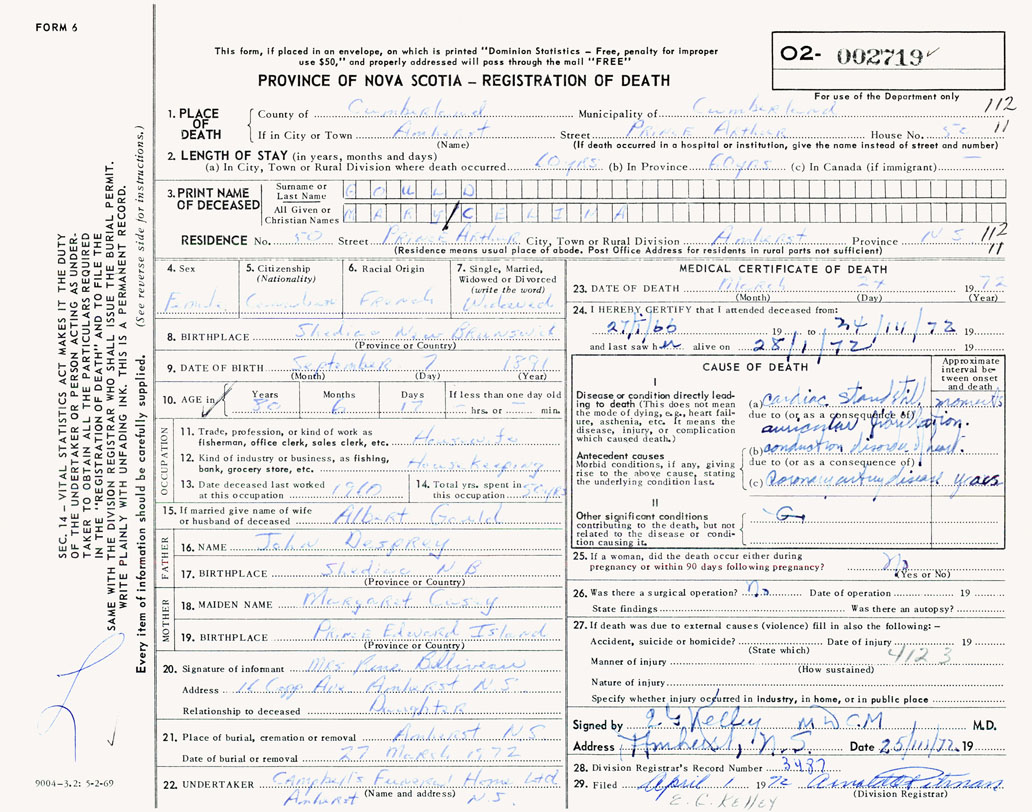 FORM 6
This form, if placed in an envelope, on which is printed "Dominion Statistics – Free, penalty for improper
use $50," and properly addressed will pass through the mail "FREE"
PROVINCE OF NOVA SCOTIA – REGISTRATION OF DEATH
O2- 002719
For use of the Department only
112
11
1. PLACE OF DEATH
County of Cumberland Municipality of Cumberland
If in City or Town Amherst Street Prince Arthur House No. 50
(Name) (If death occurred in a hospital or institution, give the name instead of street and number)
2. LENGTH OF STAY (in years, months and days)
(a) In City, Town or Rural Division where death occurred 60 yrs (b) In Province 60 yrs (c) In Canada (if immigrant) —
3. PRINT NAME OF DECEASED
Surname or Last Name GOULD
All Given or Christian Names MARY/CELINA
RESIDENCE No. 50 Street Prince Arthur City, Town or Rural Division Amherst Province NS 112
(Residence means usual place of abode. Post Office Address for residents in rural parts not sufficient) 11
4. Sex
Female
5. Citizenship
(Nationality)
Canadian
6. Racial Origin
French
7. Single, Married,
Widowed or Divorced
(write the word)
Widowed
8. BIRTHPLACE Shediac New Brunswick
(Province or Country)
9. DATE OF BIRTH September 7 1891
(Month) (Day) (Year)
10. AGE in Years 80 Months 6 Days 17 If less than one day old
– hrs. or – min.
OCCUPATION
11. Trade, profession, or kind of work as
fisherman, office clerk, sales clerk, etc. Housewife
12. Kind of industry or business, as fishing,
bank, grocery store, etc. Housekeeping
13. Date deceased last worked
at this occupation 1960
14. Total yrs. spent in
this occupation 50 yrs
15. If married give name of wife
or husband of deceased Albert Gould
FATHER
16. NAME John Desprey
17. BIRTHPLACE Shediac N B
(Province or Country)
MOTHER
18. MAIDEN NAME Margaret Casey
19. BIRTHPLACE Prince Edward Island
(Province or Country)
20. Signature of informant Mrs Rene Belliveau
Address 16 Copp Ave Amherst N S
Relationship to deceased Daughter
21. Place of burial, cremation or removal Amherst NS
Date of burial or removal 27 March 1972
22. UNDERTAKER Campbell's Funeral Home Ltd
(Name and address)
Amherst N.S.
MEDICAL CERTIFICATE OF DEATH
23. DATE OF DEATH March 24 1972
(Month) (Day) (Year)
24. I HEREBY CERTIFY that I attended deceased from:
27/1/66 19 to 24/111/72 19
and last saw her alive on 28/1/72 19
CAUSE OF DEATH
Approximate
interval be-
tween onset
and death
I
Disease or condition directly lead-
ing to death (This does not mean
the mode of dying, e.g., heart fail-
ure, asthenia, etc. it means the
disease, injury, or complication
which caused death.)
(a) cardiac standstill, moments
due to (or as a consequence of)
auricular fibrillation.
Antecedent causes
Morbid conditions, if any, giving
rise to the above cause, stating
the underlying condition last.
(b) conduction disorder heart.
due to (or as a consequence of)
(c) Coronary artery disease years
II
Other significant conditions
contributing to the death, but not
related to the disease or condi-
tion causing it.
25. If a woman, did the death occur either during
pregnancy or within 90 days following pregnancy? No
(Yes or No)
26. Was there a surgical operation? No Date of operation 19
State findings Was there an autopsy?
27. If death was due to external causes (violence) fill in also the following: –
Accident, suicide or homicide? Date of injury 19
(State which)
4123
Manner of injury
(How sustained)
Nature of injury
Specify whether injury occurred in industry, in home, or in public place
Signed by E G Kelley M D C M M.D.
Address Amherst, N.S. Date 25/111/72 19
28. Division Registrar's Record Number 3487
29. Filed April 1 1972
(Division Registrar)
E. G. KELLEY
SEC. 14 – VITAL STATISTICS ACT MAKES IT THE DUTY
OF THE UNDERTAKER OR PERSON ACTING AS UNDER-
TAKER TO OBTAIN ALL THE PARTICULARS REQUIRED
IN THE "REGISTRATION OF DEATH" AND TO FILE THE
SAME WITH THE DIVISION REGISTRAR WHO SHALL ISSUE THE BURIAL PERMIT.
WRITE PLAINLY WITH UNFADING INK. THIS IS A PERMANENT RECORD.
Every item of information should be carefully supplied. (See reverse side for instructions.)
9004-3.2: 5-2-69